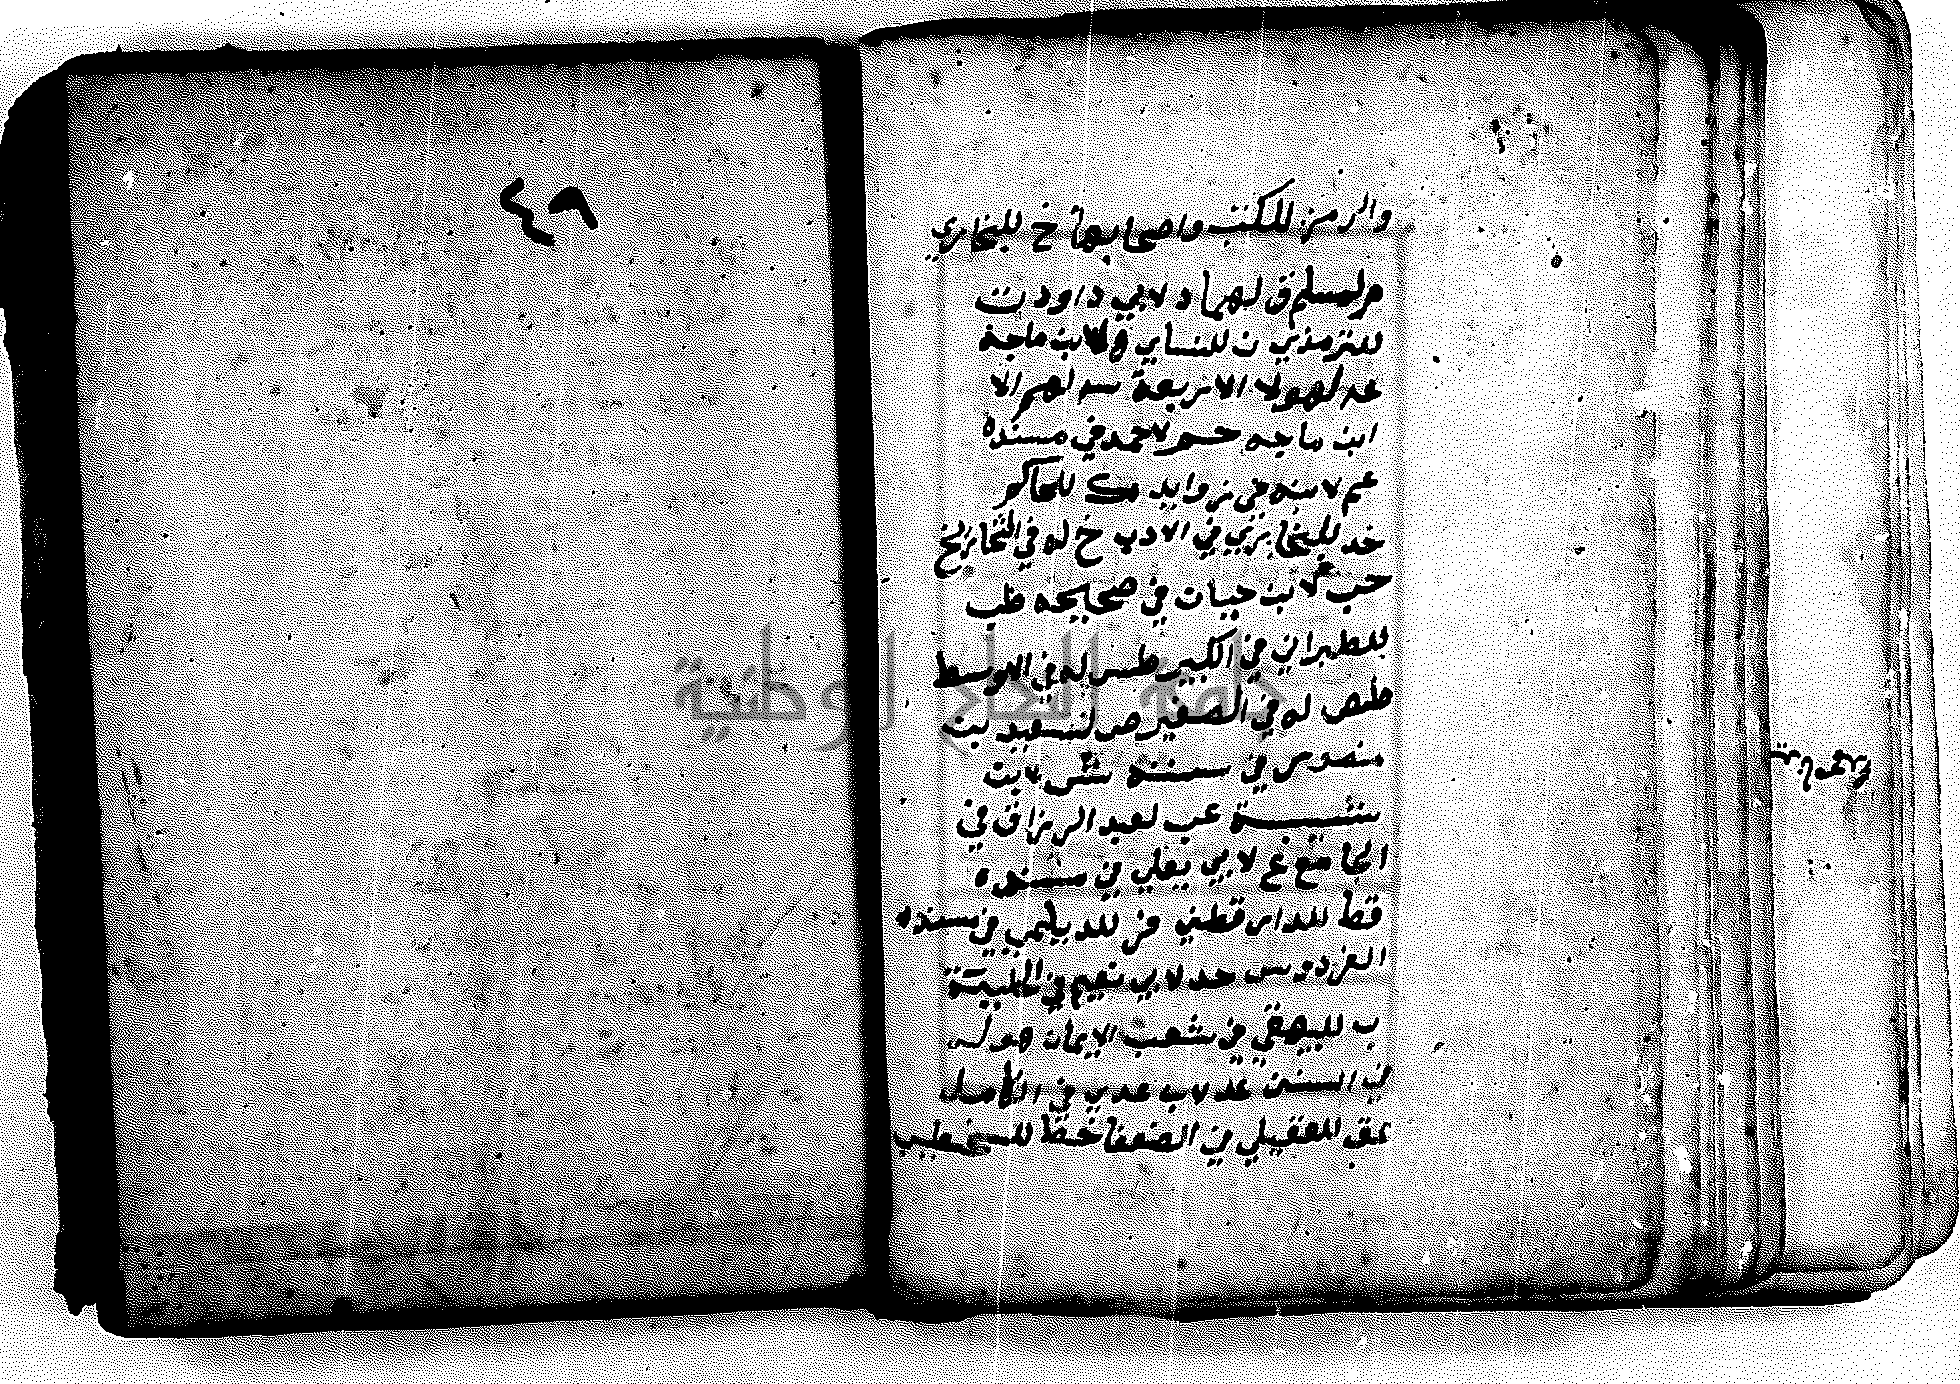 ٤٨
والرمز للكتب واصحابها خ للبخاري
م لمسلم ق لهما د لابي داود ت
للترمذي ن للنساي ه لابن ماجة
عه لهولا الاربعة سه لهم الا
ابن ماجه حم لاحمد في مسنده
عم لابنه في زوايد ك للحاكم
خد للبخاري في الادب خ له في التاريخ
حب لابن حبان في صحيحه طب
للطبراني في الكبير طس له في الاوسط
طص له في الصغير ص لسعيد بن
منصور في سننه ش لابن
شيبة عب لعبد الرزاق في
الجامع ع لابي يعلي في مسنده
قط للدارقطني فر للديلمي في مسنده
الفردوس حد لابي نعيم في الحلية
ب للبيهقي في شعب الايمان هو له
في السنن عد لابن عدي في الكامل
عق للعقيلي في الضعفا خط للخطيب
جامعة النجاح الوطنية